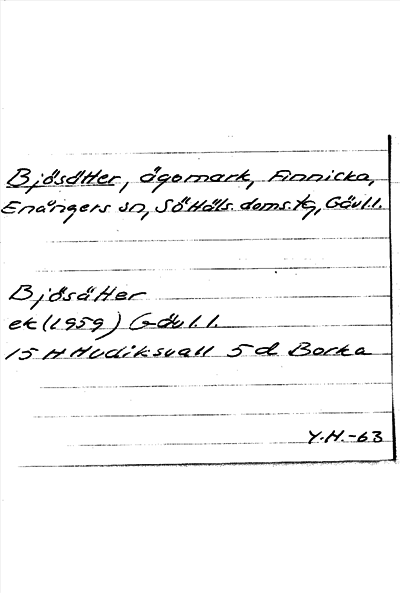 Bjösätter, ägomark, Finnicka,
Enångers sn, SöHäls. doms:tg, Gävl.l.
Bjösätter
ek (1959) Gävl.l.
15 H Hudiksvall 5 d Borka
Y.H.-63